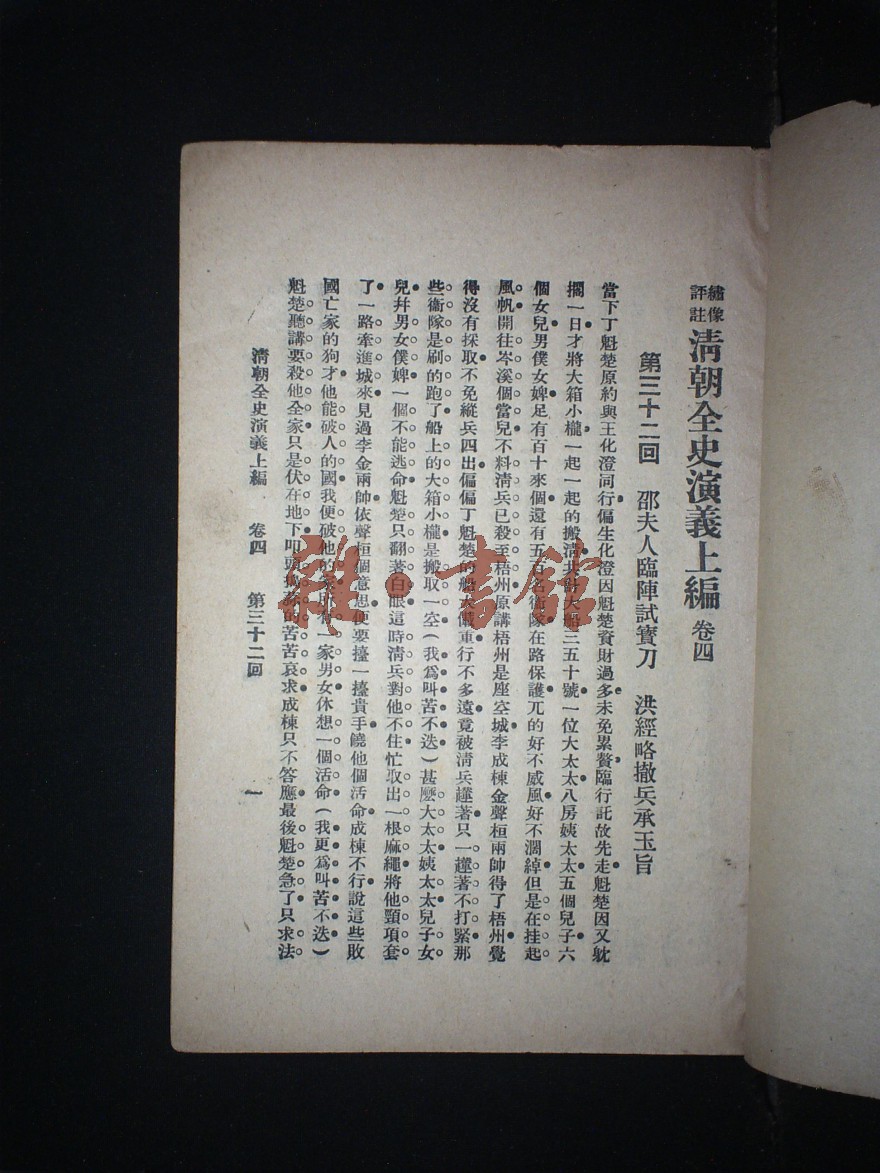 繡像評註清朝全史演義上編 卷四
第三十二回 邵夫人臨陣試寶刀 洪經略撤兵承玉旨
當下丁魁楚原約與王化澄同行偏生化澄因魁楚資財過多未免累贅臨行託故先走魁楚因又躭
擱一日才將大箱小櫳一起一起的搬淸共計大船三五十號一位大太太八房姨太太五個兒子六
個女兒男僕女婢足有百十來個還有五百名衛隊在路保護兀的好不威風好不濶綽但是在挂起
風帆開往岑溪個當兒不料淸兵已殺至梧州原講梧州是座空城李成棟金聲桓兩帥得了梧州覺
得沒有採取不免縱兵四出偏偏丁魁楚的船大儎重行不多遠竟被淸兵趕著只一趕著不打緊那
些衛隊是刷的跑了船上的大箱小櫳是搬取一空（我爲叫苦不迭）甚麽大太太姨太太兒子女
兒幷男女僕婢一個不能逃命魁楚只翻著白眼這時淸兵對他不住忙取出一根麻繩將他頸項套
了一路牽進城來見過李金兩帥依聲桓個意思便要擡一擡貴手饒他個活命成棟不行說這些敗
國亡家的狗才他能破人的國我便破他的家一家男女休想一個活命（我更爲叫苦不迭）
魁楚聽講要殺他全家只是伏在地下叩頭的苦苦哀求成棟只不答應最後魁楚急了只求法
淸朝全史演義上編 卷四 第三十二回 一
雜·書館